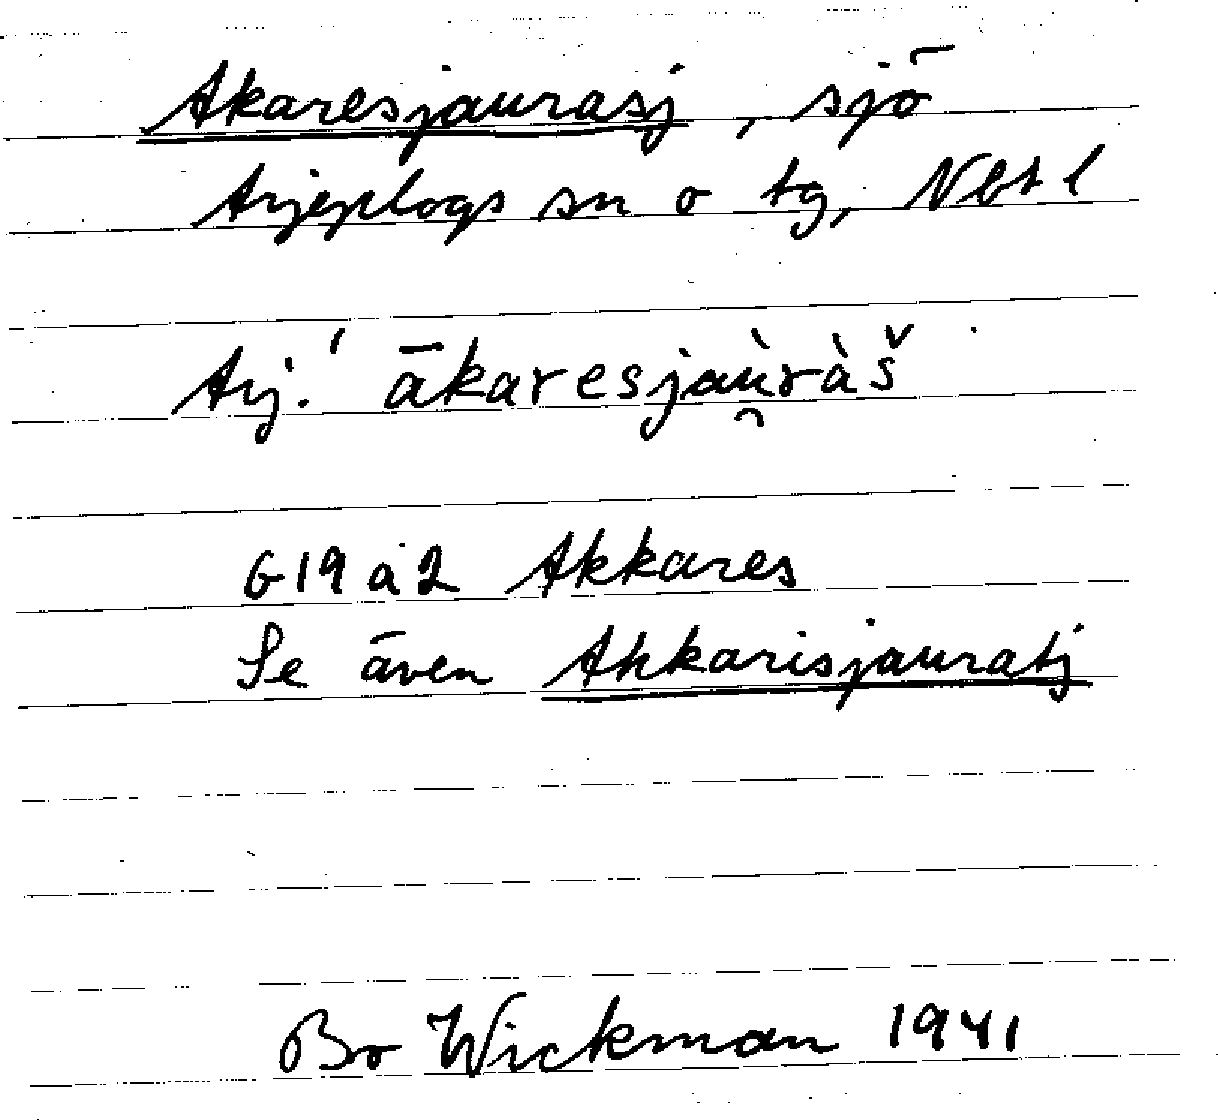 Akaresjaurasj, sjö
Arjeplogs sn o tg, Nbt l
Arj.' ākaresjaù̯ràš
G19 a2 Akkares
Se även Akkarisjauratj
Bo Wickman 1941